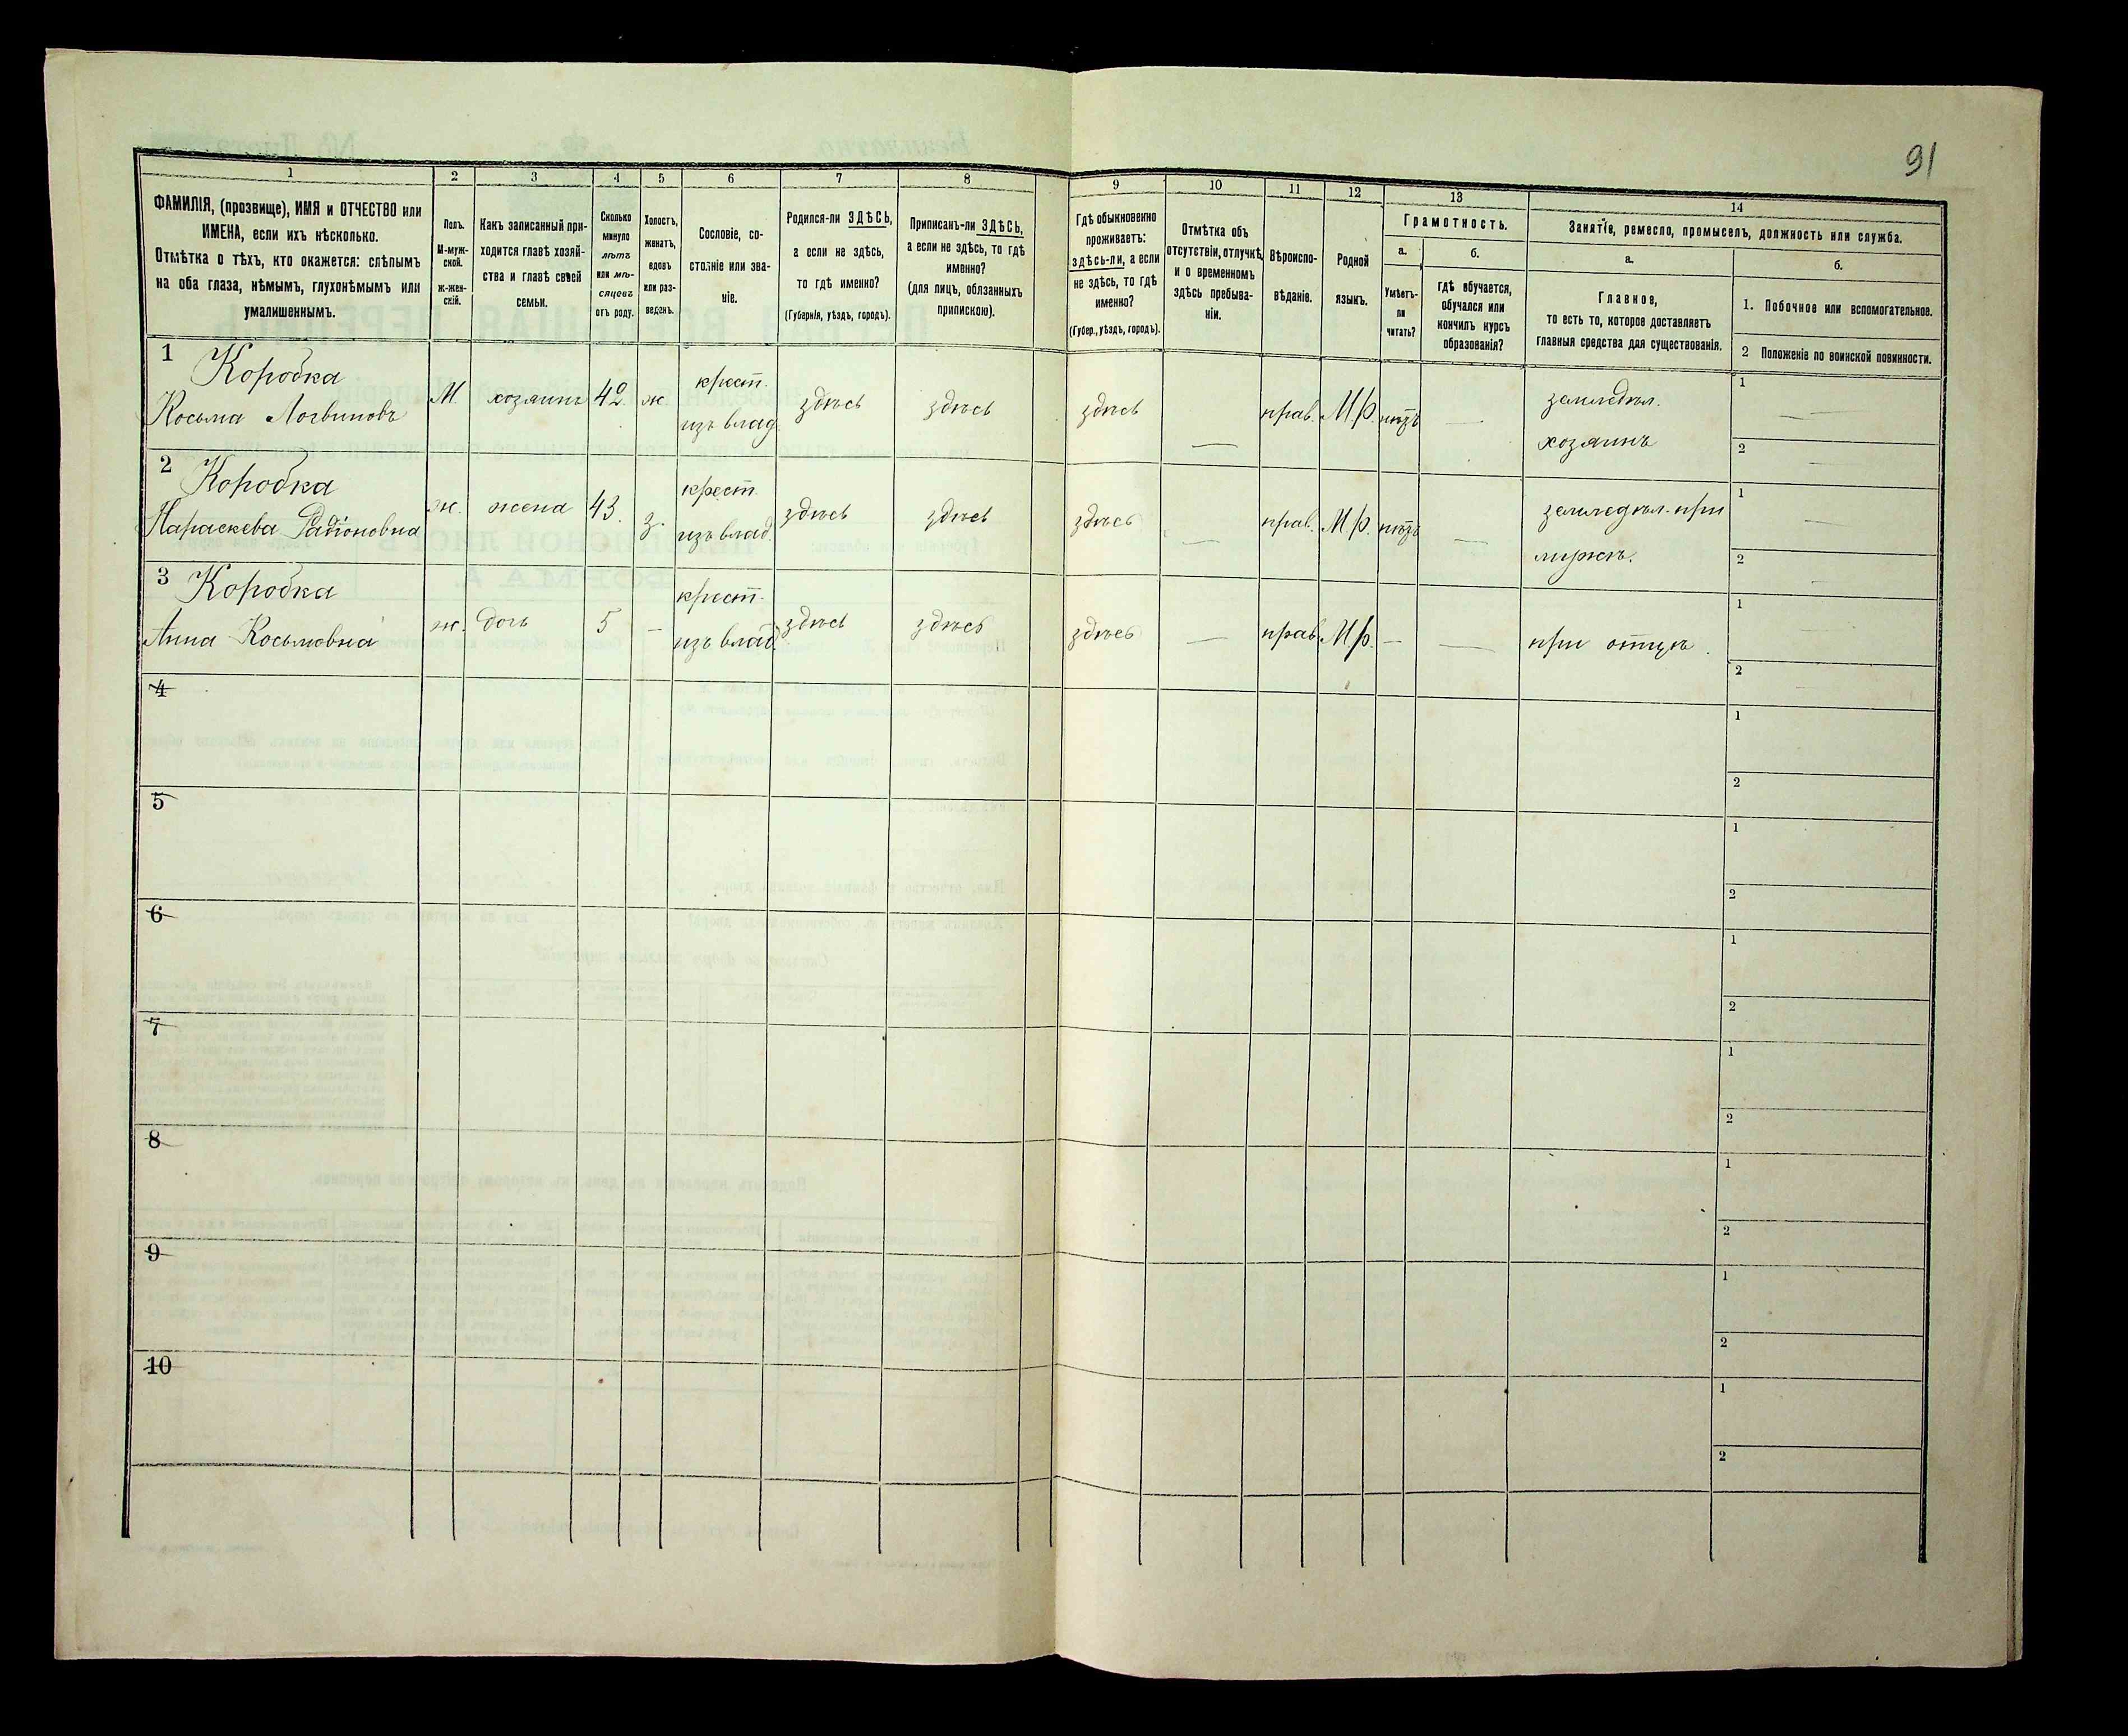 91
1 2 3 4 5 6 7 8 9 10 11 12 13 14
ФАМИЛІЯ, (прозвище), ИМЯ и ОТЧЕСТВО или
ИМЕНА, если ихъ нѣсколько.
Отмѣтка о тѣхъ, кто окажется: слѣпымъ
на оба глаза, нѣмымъ, глухонѣмымъ или
умалишеннымъ.
Полъ.
М-муж-
ской.
ж-жен-
скій.
Какъ записанный при-
ходится главѣ хозяй-
ства и главѣ своей
семьи.
Сколько
минуло
лѣтъ
или мѣ-
сяцевъ
отъ роду.
Холостъ,
женатъ,
вдовъ
или раз-
веденъ.
Сословіе, со-
стояніе или зва-
ніе.
Родился-ли ЗДѢСЬ,
а если не здѣсь,
то гдѣ именно?
(Губернія, уѣздъ, городъ).
Приписанъ-ли ЗДѢСЬ,
а если не здѣсь, то гдѣ
именно?
(для лицъ, обязанныхъ
припискою).
Гдѣ обыкновенно
проживаетъ:
здѣсь-ли, а если
не здѣсь, то гдѣ
именно?
(Губер., уѣздъ, городъ).
Отмѣтка объ
отсутствіи, отлучкѣ
и о временномъ
здѣсь пребыва-
ніи.
Вѣроиспо-
вѣданіе.
Родной
языкъ.
Грамотность.
а.
Умѣетъ-
ли
читать?
б.
гдѣ обучается,
обучался или
кончилъ курсъ
образованія?
Занятіе, ремесло, промыселъ, должность или служба.
а.
Главное,
то есть то, которое доставляетъ
главныя средства для существованія.
б.
1. Побочное или вспомогательное.
2 Положеніе по воинской повинности.
1 Коробка
Косьма Логвиновъ М. хозяинъ 42. ж. крест. изъ влад. здѣсь здѣсь здѣсь — прав. М/р. нѣтъ — земледѣл.
хозяинъ
1 —
2 —
2 Коробка
Параскева Радіоновна ж. жена 43. з. крест. изъ влад. здѣсь здѣсь здѣсь — прав. М/р. нѣтъ — земледѣл. при
мужѣ.
1 —
2 —
3 Коробка
Анна Косьмовна ж. дочь 5 — крест. изъ влад. здѣсь здѣсь здѣсь — прав. М/р. — — при отцѣ.
1 —
2 —
4
1
2
5
1
2
6
1
2
7
1
2
8
1
2
9
1
2
10
1
2